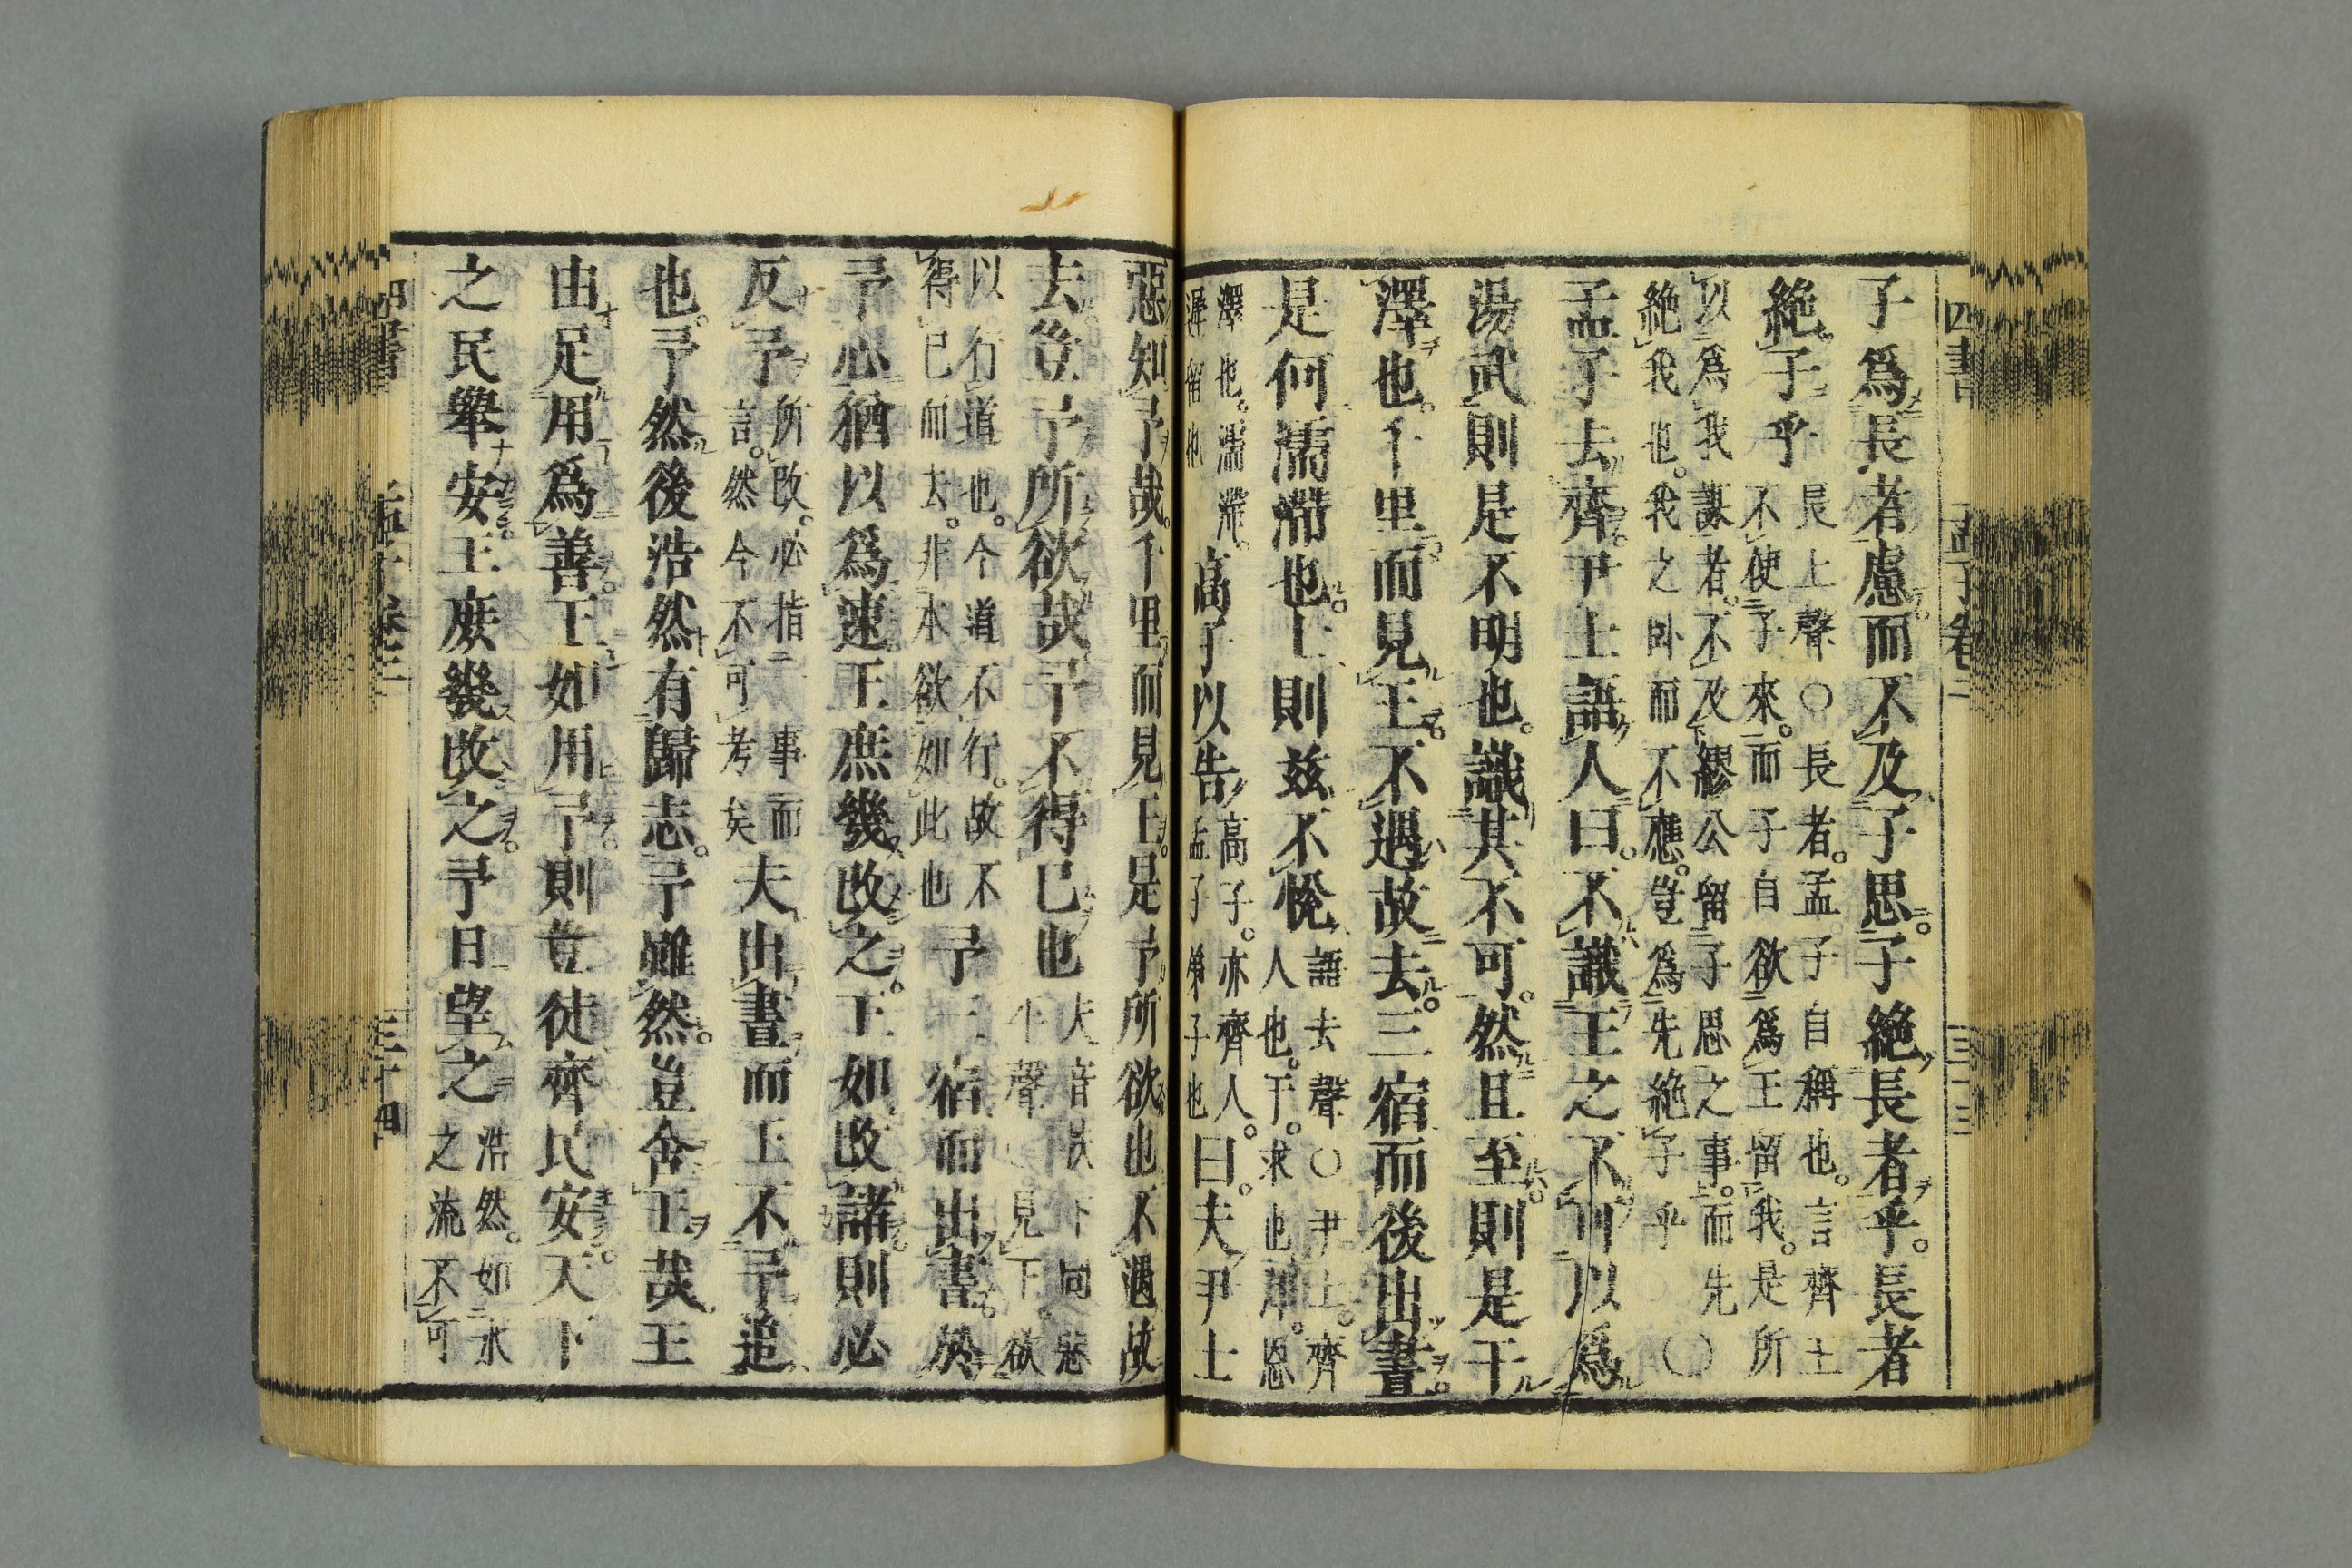 四書 孟子卷二 三十三
子爲長者慮而不及子思子絶長者乎長者
絶子乎 長上聲○長者孟子自稱也言齊王
不使子來而子自欲爲王留我是所
以爲我謀者不及繆公留子思之事而先
絶我也我之卧而不應豈爲先絶子乎 ○
孟子去齊尹士語人曰不識王之不可以爲
湯武則是不明也識其不可然且至則是干
澤也千里而見王不遇故去三宿而後出晝
是何濡滯也士則兹不悅 語去聲○尹士齊
人也干求也澤恩
澤也濡滯
遲留也
高子以告 高子亦齊人
孟子弟子也
曰夫尹士
惡知予哉千里而見王是予所欲也不遇故
去豈予所欲哉予不得已也 夫音扶下同惡
平聲○見下欲
以行道也今道不行故不
得已而去非本欲如此也
予三宿而出晝於
予心猶以爲速王庶幾改之王如改諸則必
反予 所改必指一事而
言然今不可考矣
夫出晝而王不予追
也予然後浩然有歸志予雖然豈舍王哉王
由足用爲善王如用予則豈徒齊民安天下
之民舉安王庶幾改之予日望之 浩然如水
之流不可
四書 孟子卷二 三十四